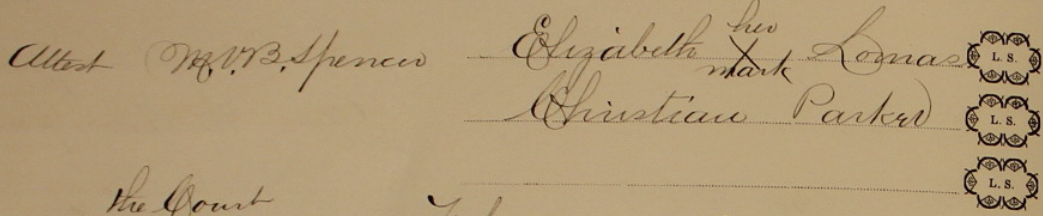 her
Attest M.V.B. Spencer Elizabeth X Lomas L. S.
mark
Christian Parker L. S.
L. S.
the Court